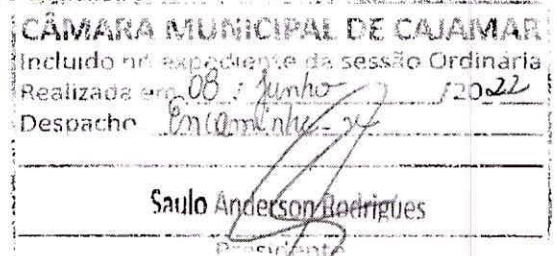 CÂMARA MUNICIPAL DE CAJAMAR
Incluido no expediente da sessão Ordinária
Realizada em 08 / Junho /2022
Despacho Encaminhe-se
Saulo Anderson Rodrigues
Presidente